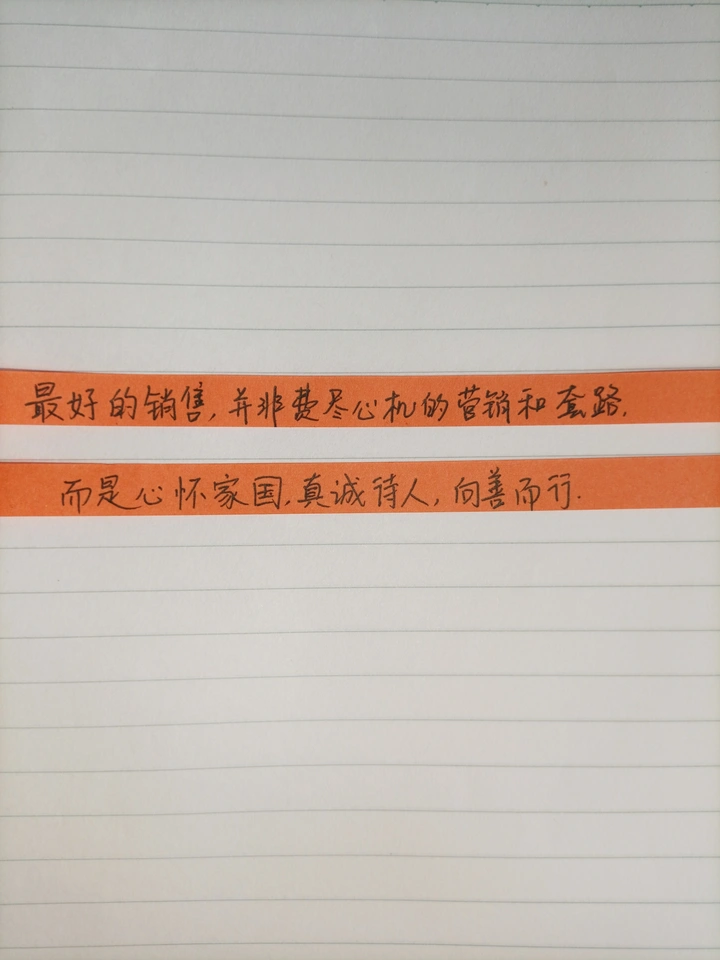 最好的销售,并非费尽心机的营销和套路.
而是心怀家国.真诚待人,向善而行.